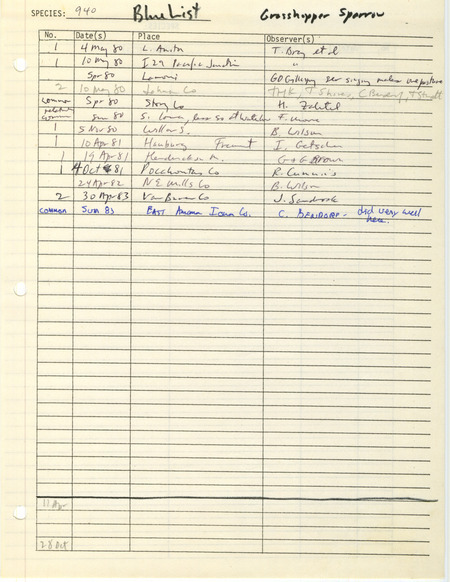 SPECIES: 940 Blue List Grasshopper Sparrow
No. Date(s) Place Observer(s)
1 4 May 80 L. Anita T. Bray et al
1 10 May 80 I 29 Pacific Junction "
Spr 80 Lamoni singing males
2 10 May 80 Johnson Co THK, T Shires, C Bendorf, T Staudt
common Spr 80 Story Co H. Zaletel
relatively common Sum 80 F. Moore
1 5 Nov 80 Willow S. B. Wilson
1 10 Apr 81 Hamburg Fremont
1 19 Apr 81 Hendrickson M. G & G Brown
1 4 Oct 81 Pocahontas Co R. Cummins
24 Apr 82 NE Mills Co B. Wilson
2 30 Apr 83 Van Buren Co J. Sandrock
common Sum 83 East Amana Iowa Co. C. Bendorf - did very well here.
11 Apr
28 Oct